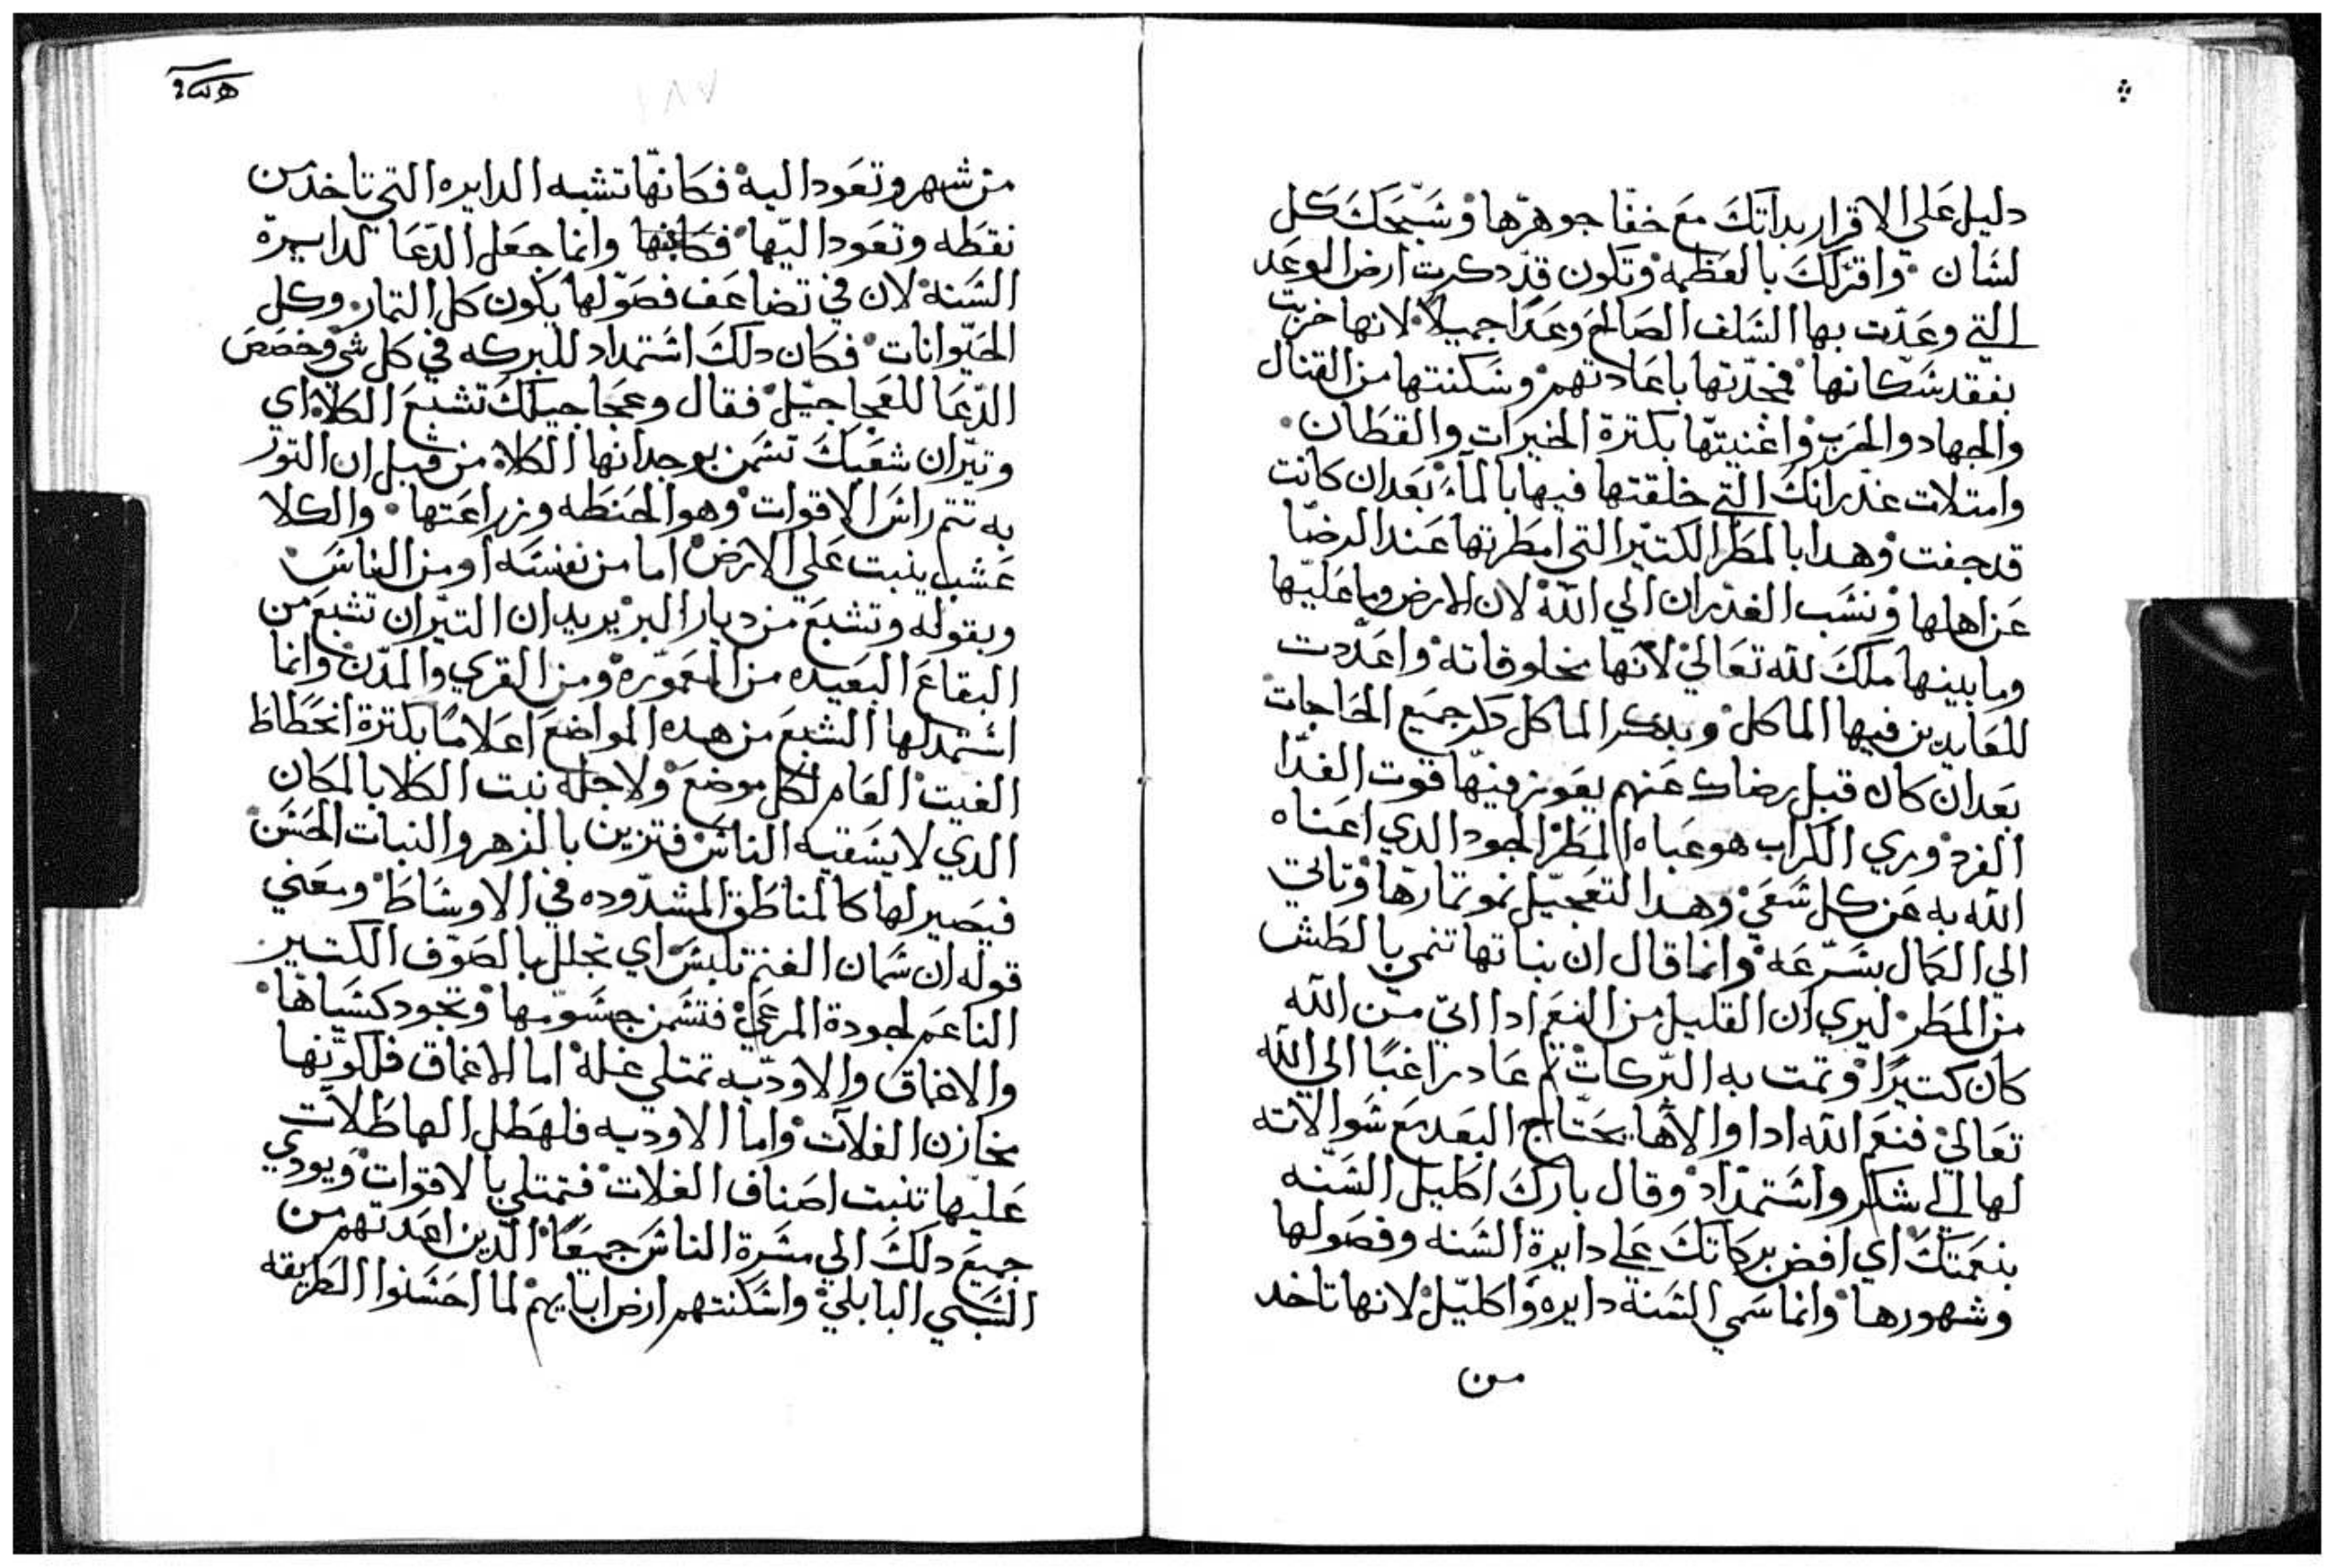 دليل علي الاقرار بداتك مع خفا جوهرها وشبحك كل
لشان واقرلك بالعظمه وتكون قد دكرت ارض الوعد
التي وعدت بها الشلف الصالح وعدًا جميلاً لانها خربت
بفقد شكانها فجددتها باعادتهم وشكنتها من القتال
والجهاد والحرب واغنيتها بكترة الخيرات والقطان
وامتلات غدرانك التي خلقتها فيها بالمآء بعد ان كانت
قد جفت وهدا بالمطر الكتير التي امطرتها عند الرضا
عن اهلها ونشب الغدران الي الله لان الارض وما عليها
وما بينها ملك لله تعالي لانها مخلوقاته واعددت
للعابدين فيها الماكل وبدكر الماكل دكر جميع الحاجات
بعد ان كان قبل رضاك عنهم يعوز فيها قوت الغدا
الفرد وري الكراب هو عباه المطر الجود الدي اعناه
الله به عن كل شقي وهدا التعجيل نمو تمارها وتاتي
الي الكمال بشرعه وانما قال ان نباتها تنمي بالطش
من المطر ليري ان القليل من النعم ادا اتي من الله
كان كتيرًا وتمت به البركات تم عاد راغبًا الي الله
تعالي فنعم الله ادا والاها يحتاج البعد مع شوالاته
لها الي شكر واشتمداد وقال بارك اكليل الشنه
بنعمتك اي افض بركاتك علي دايرة الشنه وفصولها
وشهورها وانما شمي الشنه دايره واكليل لانها تاخد
من
من شهر وتعود اليه فكانها تشبه الدايره التي تاخد من
نقطه وتعود اليها فكانها وانما جعل الدعا لدايرة
الشنه لان في تضاعف فصولها يكون كل التمار وكل
الحيوانات فكان دلك اشتمداد للبركه في كل شي وخصص
الدعا للعجاجيل فقال وعجاجيلك تشبع الكلا اي
وتيران شعبك تشمن بوجدانها الكلا من قبل ان التور
به تتم راش الاقوات وهو الحنطه وزراعتها والكلا
عشب ينبت علي الارض اما من نفشه او من الناش
وبقوله وتشبع من ديار البر يريد ان التيران تشبع من
البقاع البعيده من المعموره ومن القري والمدن وانما
اشتمد لها الشبع من هده المواضع اعلامًا بكترة انحطاط
الغيت العام لكل موضع ولاجله نبت الكلا بالمكان
الدي لا يشقيه الناش فتزين بالزهر والنبات الحشن
فيصير لها كالمناطق المشدوده في الاوشاط ومعني
قوله ان شمان الغنم تلبش اي تجلل بالصوف الكتير
الناعم لجودة المرعي فتشمن جشومها وتجود كشباها
والاغماق والاوديه تمتلي غله اما الاغماق فلكونها
مخازن الغلات واما الاوديه فلهطل الهاطلات
عليها تنبت اصناف الغلات فتمتلي بالاقوات ويودي
جميع دلك الي مشرة الناش جميعًا الدين اعدتهم من
الشبي البابلي واشكنتهم ارض ابايهم لما احشنوا الطريقه